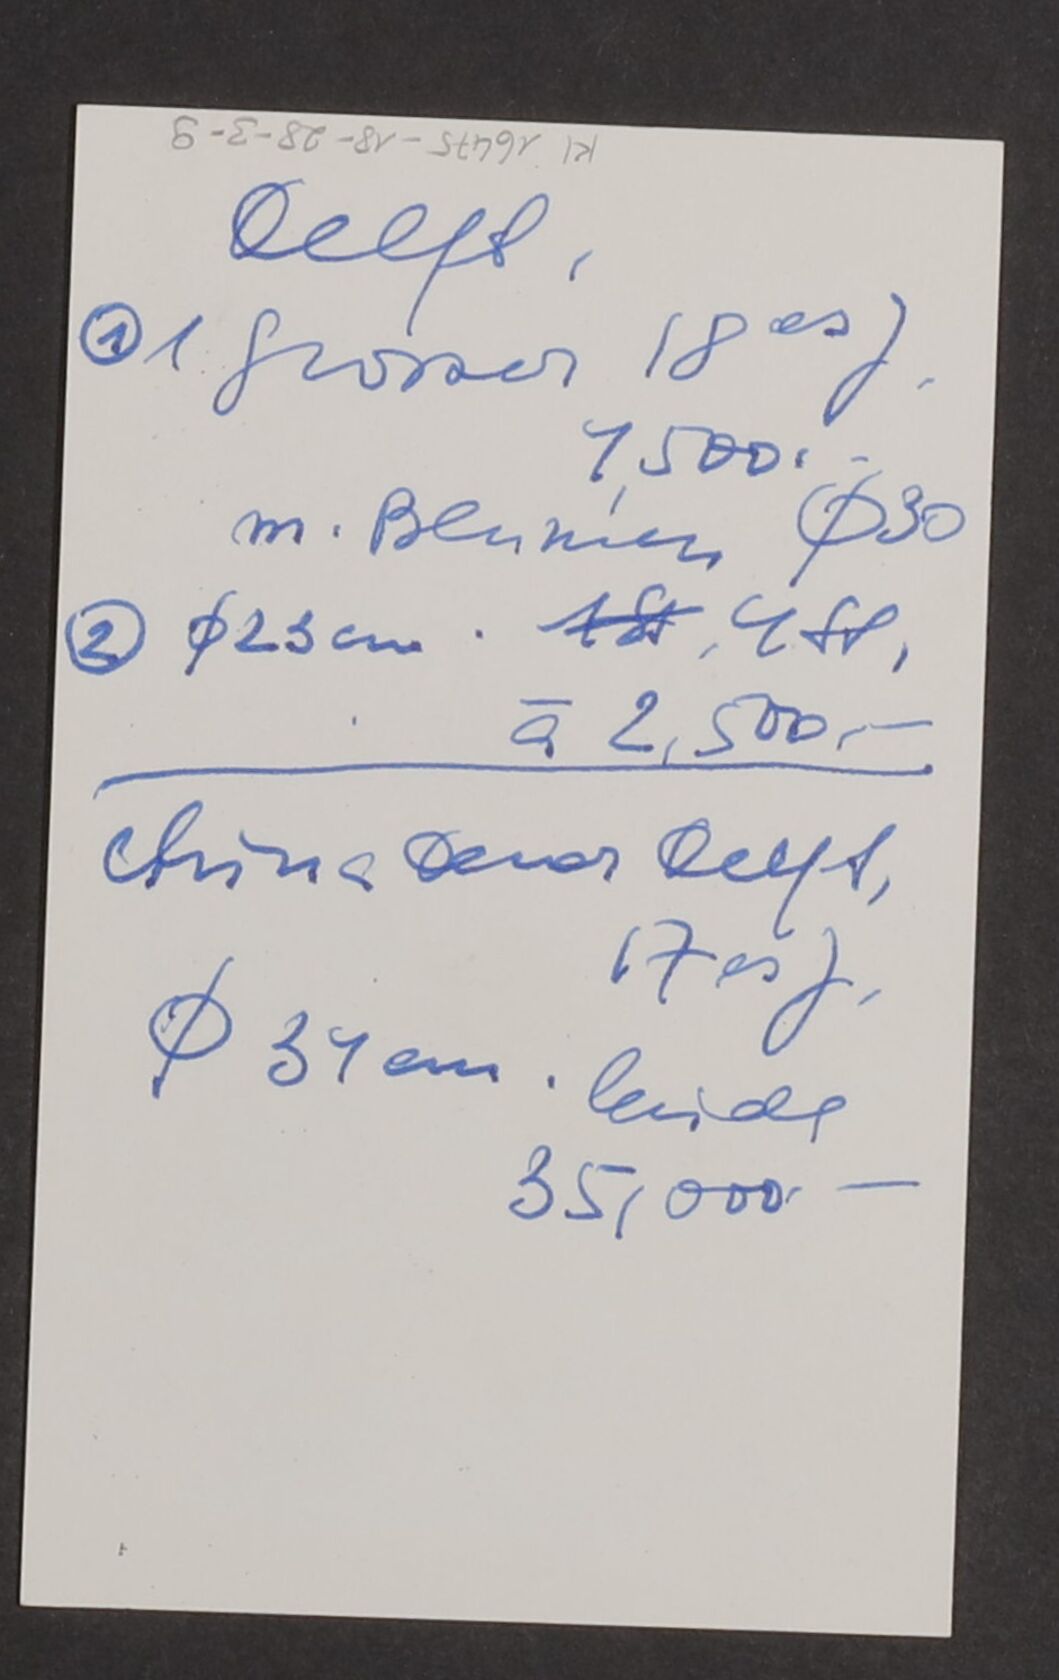 Kl 16475-18-28-3-9
Delft,
① 1 grosser 18es J.
4,500.-
m. Blumen Ø30
② Ø23cm. 1St, 4 St,
à 2,500.-
China Delft,
17es J,
Ø 34cm. beide
35,000.-